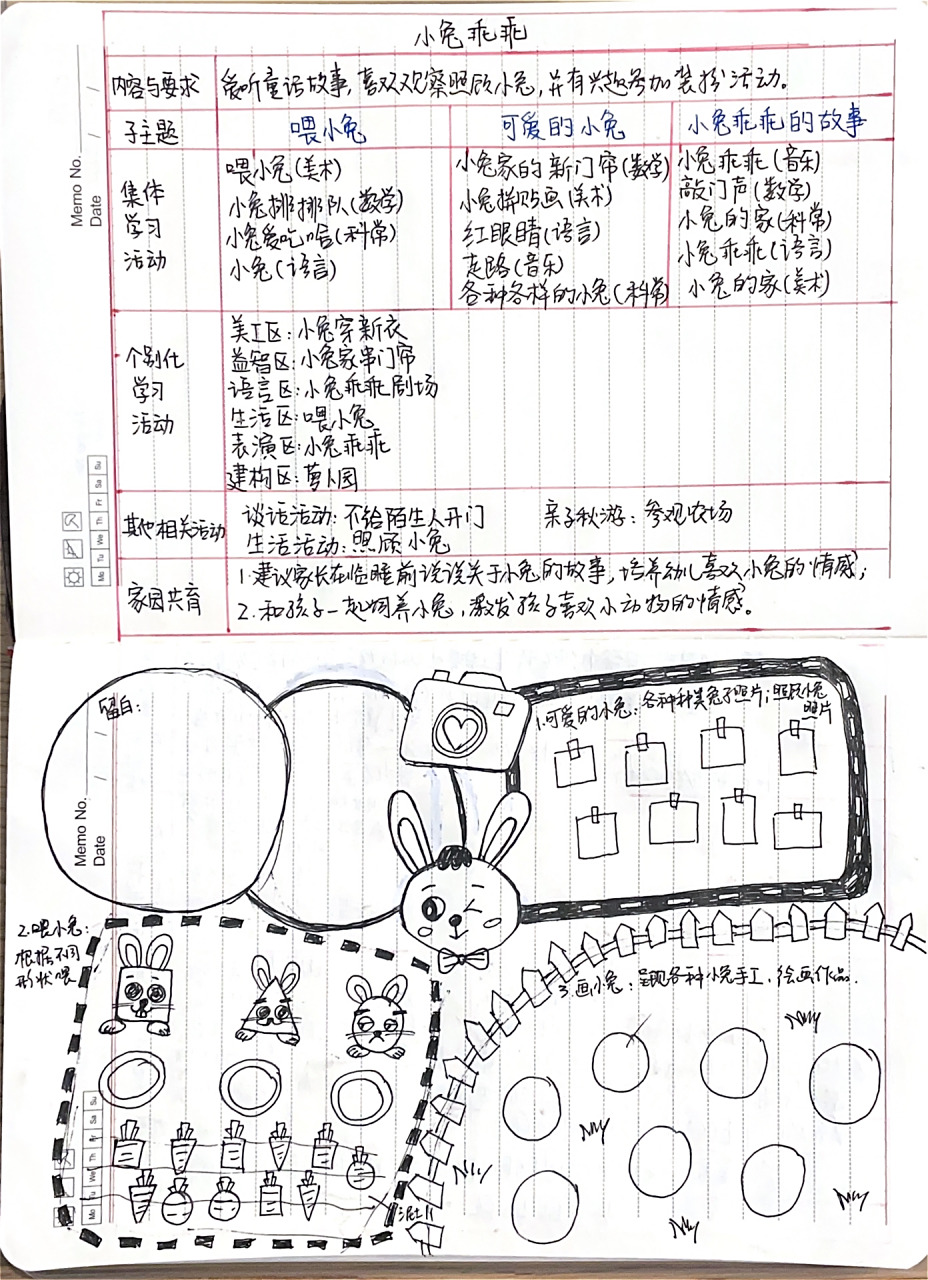 小兔乖乖
内容与要求 爱听童话故事,喜欢观察照顾小兔,并有兴趣参加装扮活动。
子主题 喂小兔 可爱的小兔 小兔乖乖的故事
集体
学习
活动
喂小兔(美术)
小兔排排队(数学)
小兔爱吃啥(科常)
小兔(语言)
小兔家的新门帘(数学)
小兔拼贴画(美术)
红眼睛(语言)
走路(音乐)
各种各样的小兔(科常)
小兔乖乖(音乐)
敲门声(数学)
小兔的家(科常)
小兔乖乖(语言)
小兔的家(美术)
个别化
学习
活动
美工区:小兔穿新衣
益智区:小兔家串门帘
语言区:小兔乖乖剧场
生活区:喂小兔
表演区:小兔乖乖
建构区:萝卜园
其他相关活动
谈话活动:不给陌生人开门 亲子秋游:参观农场
生活活动:照顾小兔
家园共育
1.建议家长在临睡前说说关于小兔的故事,培养幼儿喜欢小兔的情感;
2.和孩子一起饲养小兔,激发孩子喜欢小动物的情感。
Memo No.
Date / /
Mo Tu We Th Fr Sa Su
留白:
Memo No.
Date / /
1.可爱的小兔:各种种类兔子照片;照顾小兔
照片
2.喂小兔:
根据不同
形状喂
3.画小兔:呈现各种小兔手工、绘画作品.
泥土
Mo Tu We Th Fr Sa Su